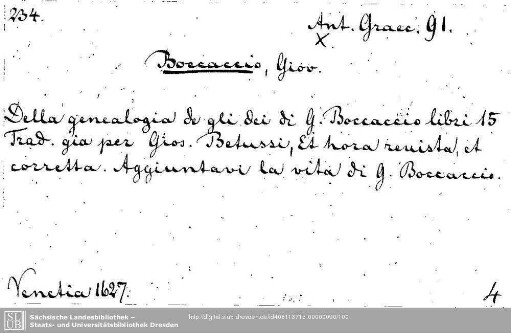 234.
Ant. Graec. 91.
X
Boccaccio, Giov.
Della genealogia de gli dei di G. Boccaccio libri 15
Trad. gia per Gios. Betussi, Et hora reuista, et
corretta. Aggiuntavi la vita di G. Boccaccio.
Venetia 1627.
4
SLUB
Sächsische Landesbibliothek –
Staats- und Universitätsbibliothek Dresden